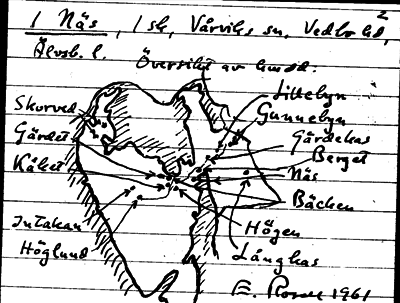 2
1 Näs, 1 sk, Vårviks sn, Vedbo hd,
Älvsb. l.
Översikt av
Skorved
Gärdet
Kålet
Intakan
Höglund
Littebyn
Gunnebyn
Gärdekas
Berget
Näs
Bäcken
Högen
Långkas
E. 1961